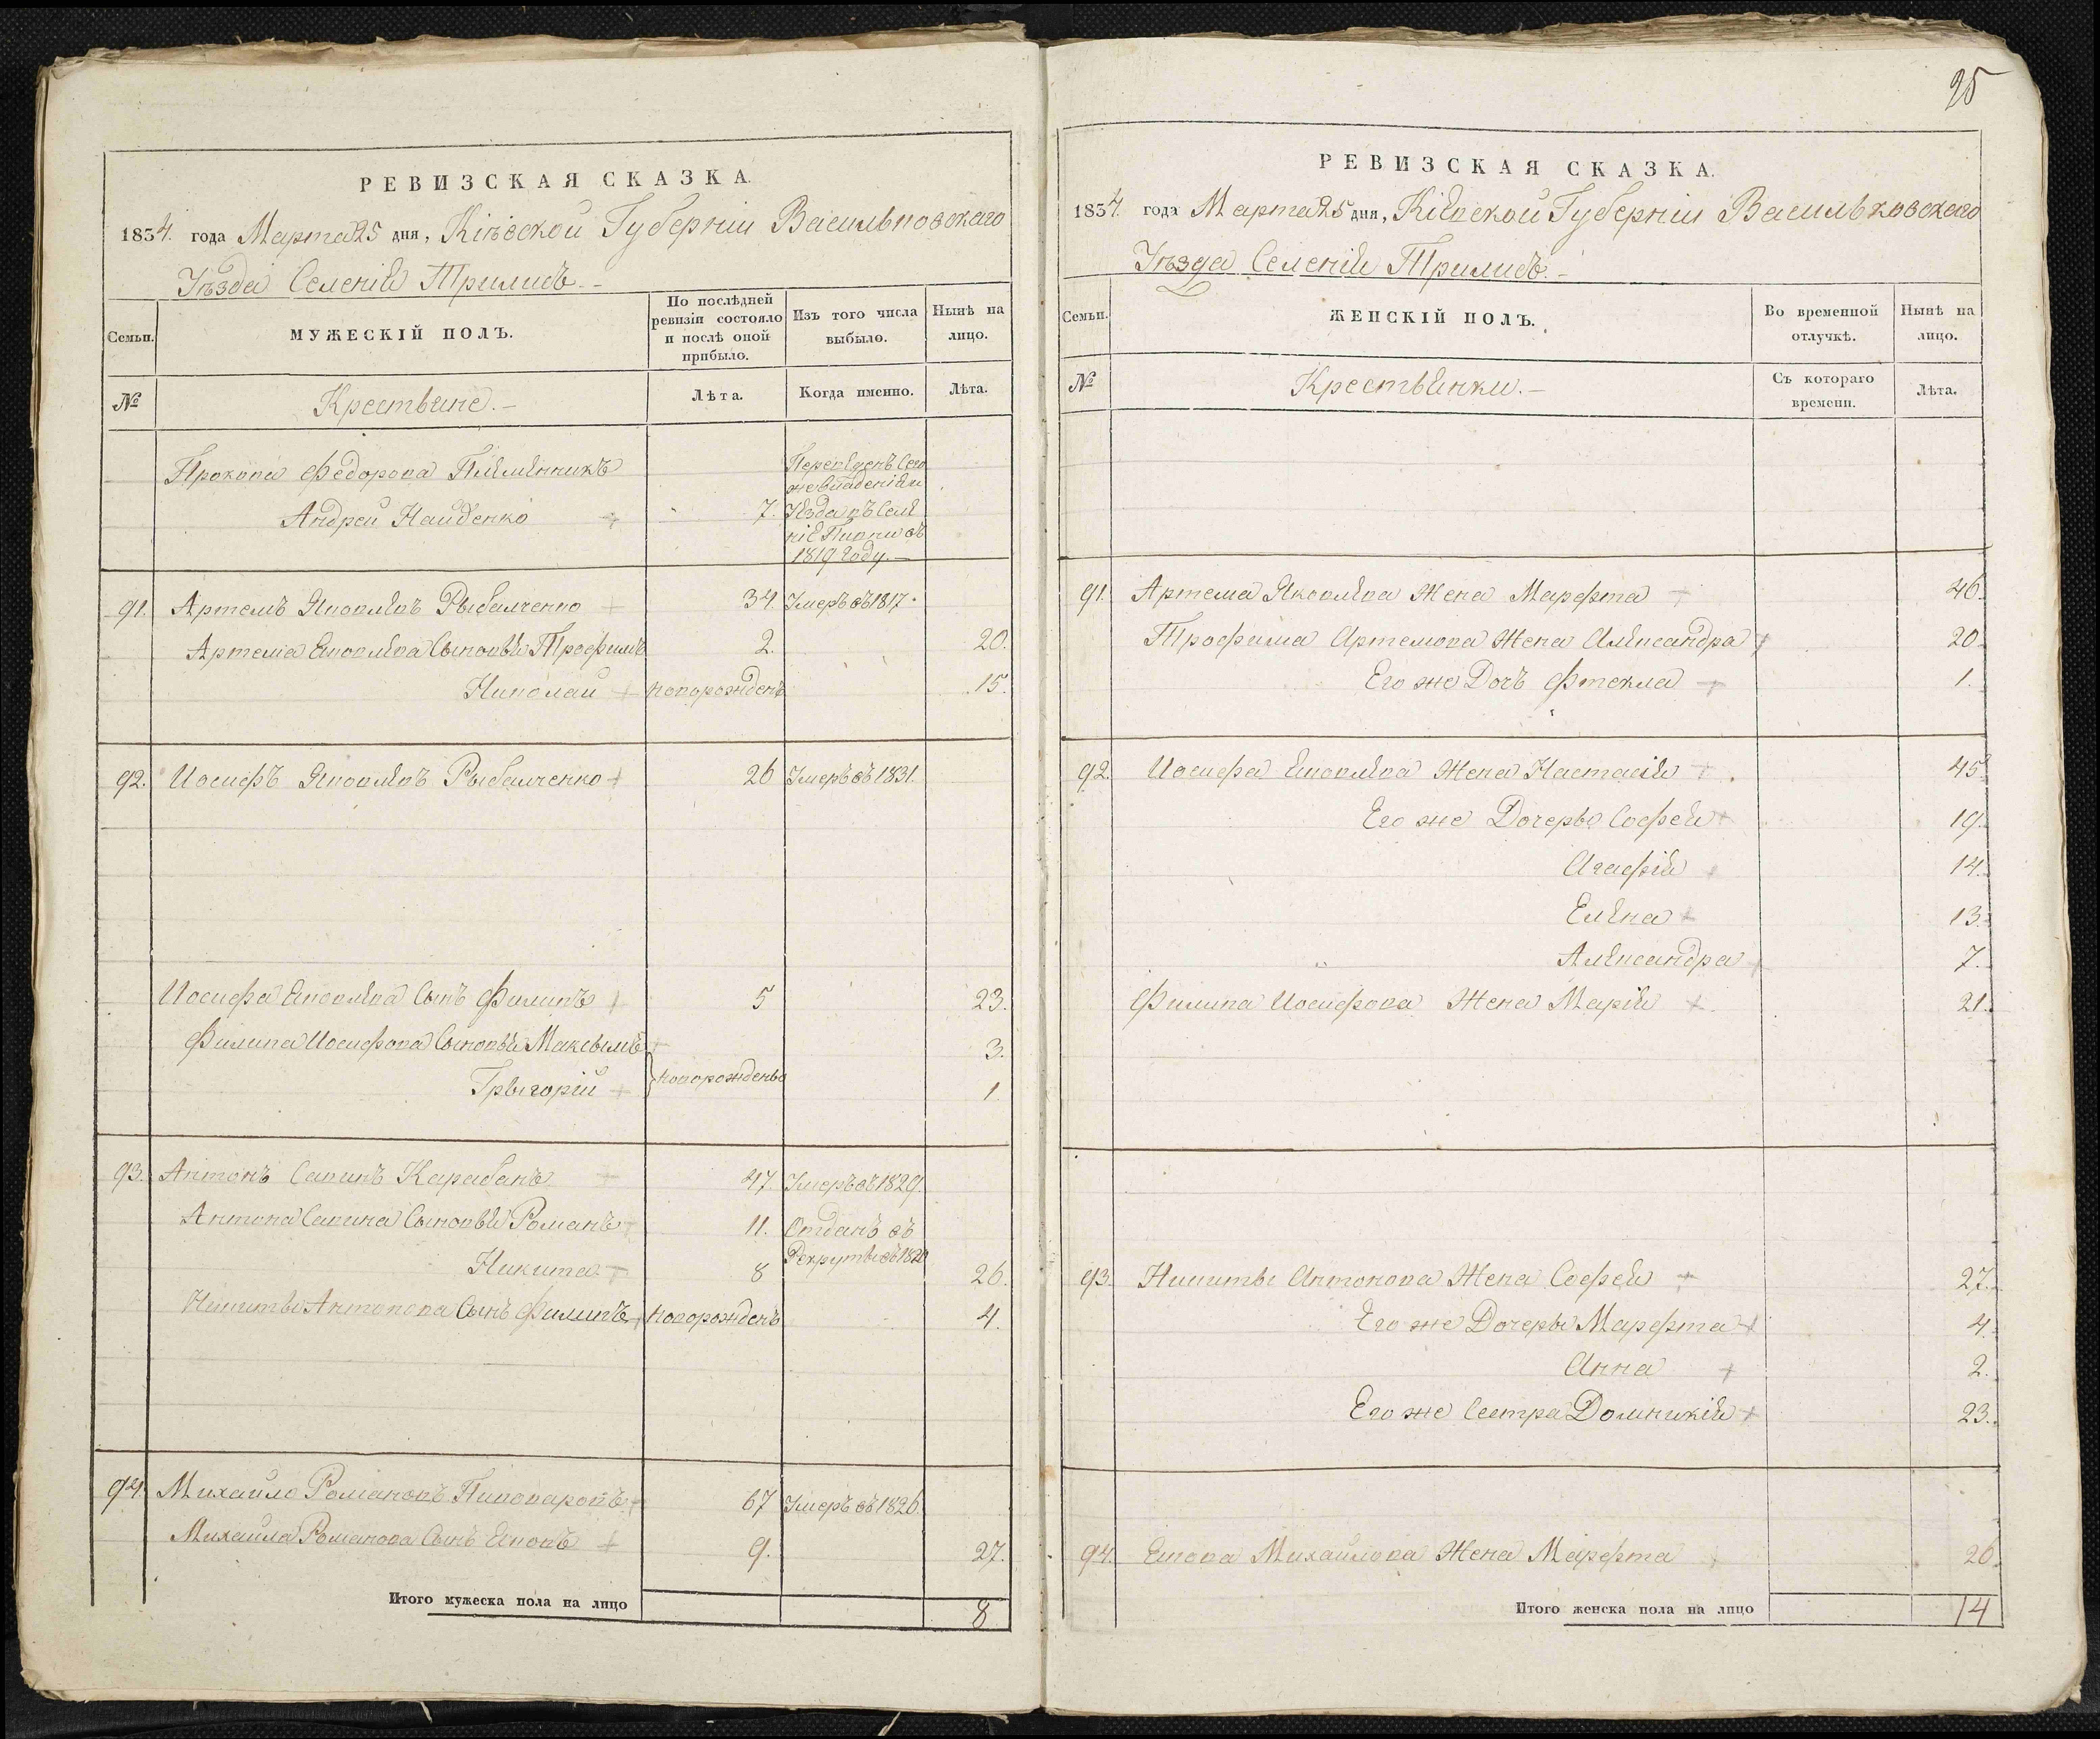 25
РЕВИЗСКАЯ СКАЗКА.
1834. года Марта 25 дня, Кіевской Губерніи Васильковскаго
Уѣзда Селенія Трилисъ.
Семьи.
МУЖЕСКІЙ ПОЛЪ.
По послѣдней ревизіи состояло и послѣ оной прибыло.
Изъ того числа выбыло.
Нынѣ на лицо.
№
Крестьяне.
Лѣта.
Когда именно.
Лѣта.
Прокопа Федорова Племянникъ
Андрей Найденко 7.
Переведенъ сего
же владенія и
Уезда въ Селе
ніе Пивни въ
1819 Году.
91. Артемъ Яковлевъ Рыбалченко 34. Умеръ въ 1817
Артема Яковлева Сыновья Трофимъ 2. 20.
Николай новорожденъ 15.
92. Иосифъ Яковлевъ Рыбалченко 26 Умеръ въ 1831.
Иосифа Яковлева Сынъ Филипъ 5 23.
Филипа Иосифова Сыновья Максымъ 3.
новорожденые
Грыгорій 1
93. Антонъ Савинъ Карабанъ 47. Умеръ въ 1829.
Антона Савина Сыновья Романъ 11. Отданъ въ
Рекруты въ 1820
Никита 8 26.
Никиты Антонова Сынъ Филипъ новорожденъ 4.
94. Михайло Романовъ Пивоваровъ 67 Умеръ въ 1826
Михайла Романова Сынъ Яковъ 9. 27.
Итого мужеска пола на лицо 8
РЕВИЗСКАЯ СКАЗКА.
1834. года Марта 25 дня, Кіевской Губерніи Васильковскаго
Уѣзда Селенія Трилисъ.
Семьи.
ЖЕНСКІЙ ПОЛЪ.
Во временной отлучкѣ.
Нынѣ на лицо.
№
Крестьянки.
Съ котораго времени.
Лѣта.
91. Артема Яковлева Жена Марфта 46.
Трофима Артемова Жена Александра 20.
Его же Дочь Фтекла 1.
92. Иосифа Яковлева Жена Настасія 45
Его же Дочеры Софея 19.
Агафія 14.
Елена 13.
Александра 7.
Филипа Иосифова Жена Марія 21.
93. Никиты Антонова Жена Софея 27.
Его же Дочеры Марфта 4.
Анна 2.
Его же Сестра Домникія 23.
94. Якова Михайлова Жена Марфта 26.
Итого женска пола на лицо 14